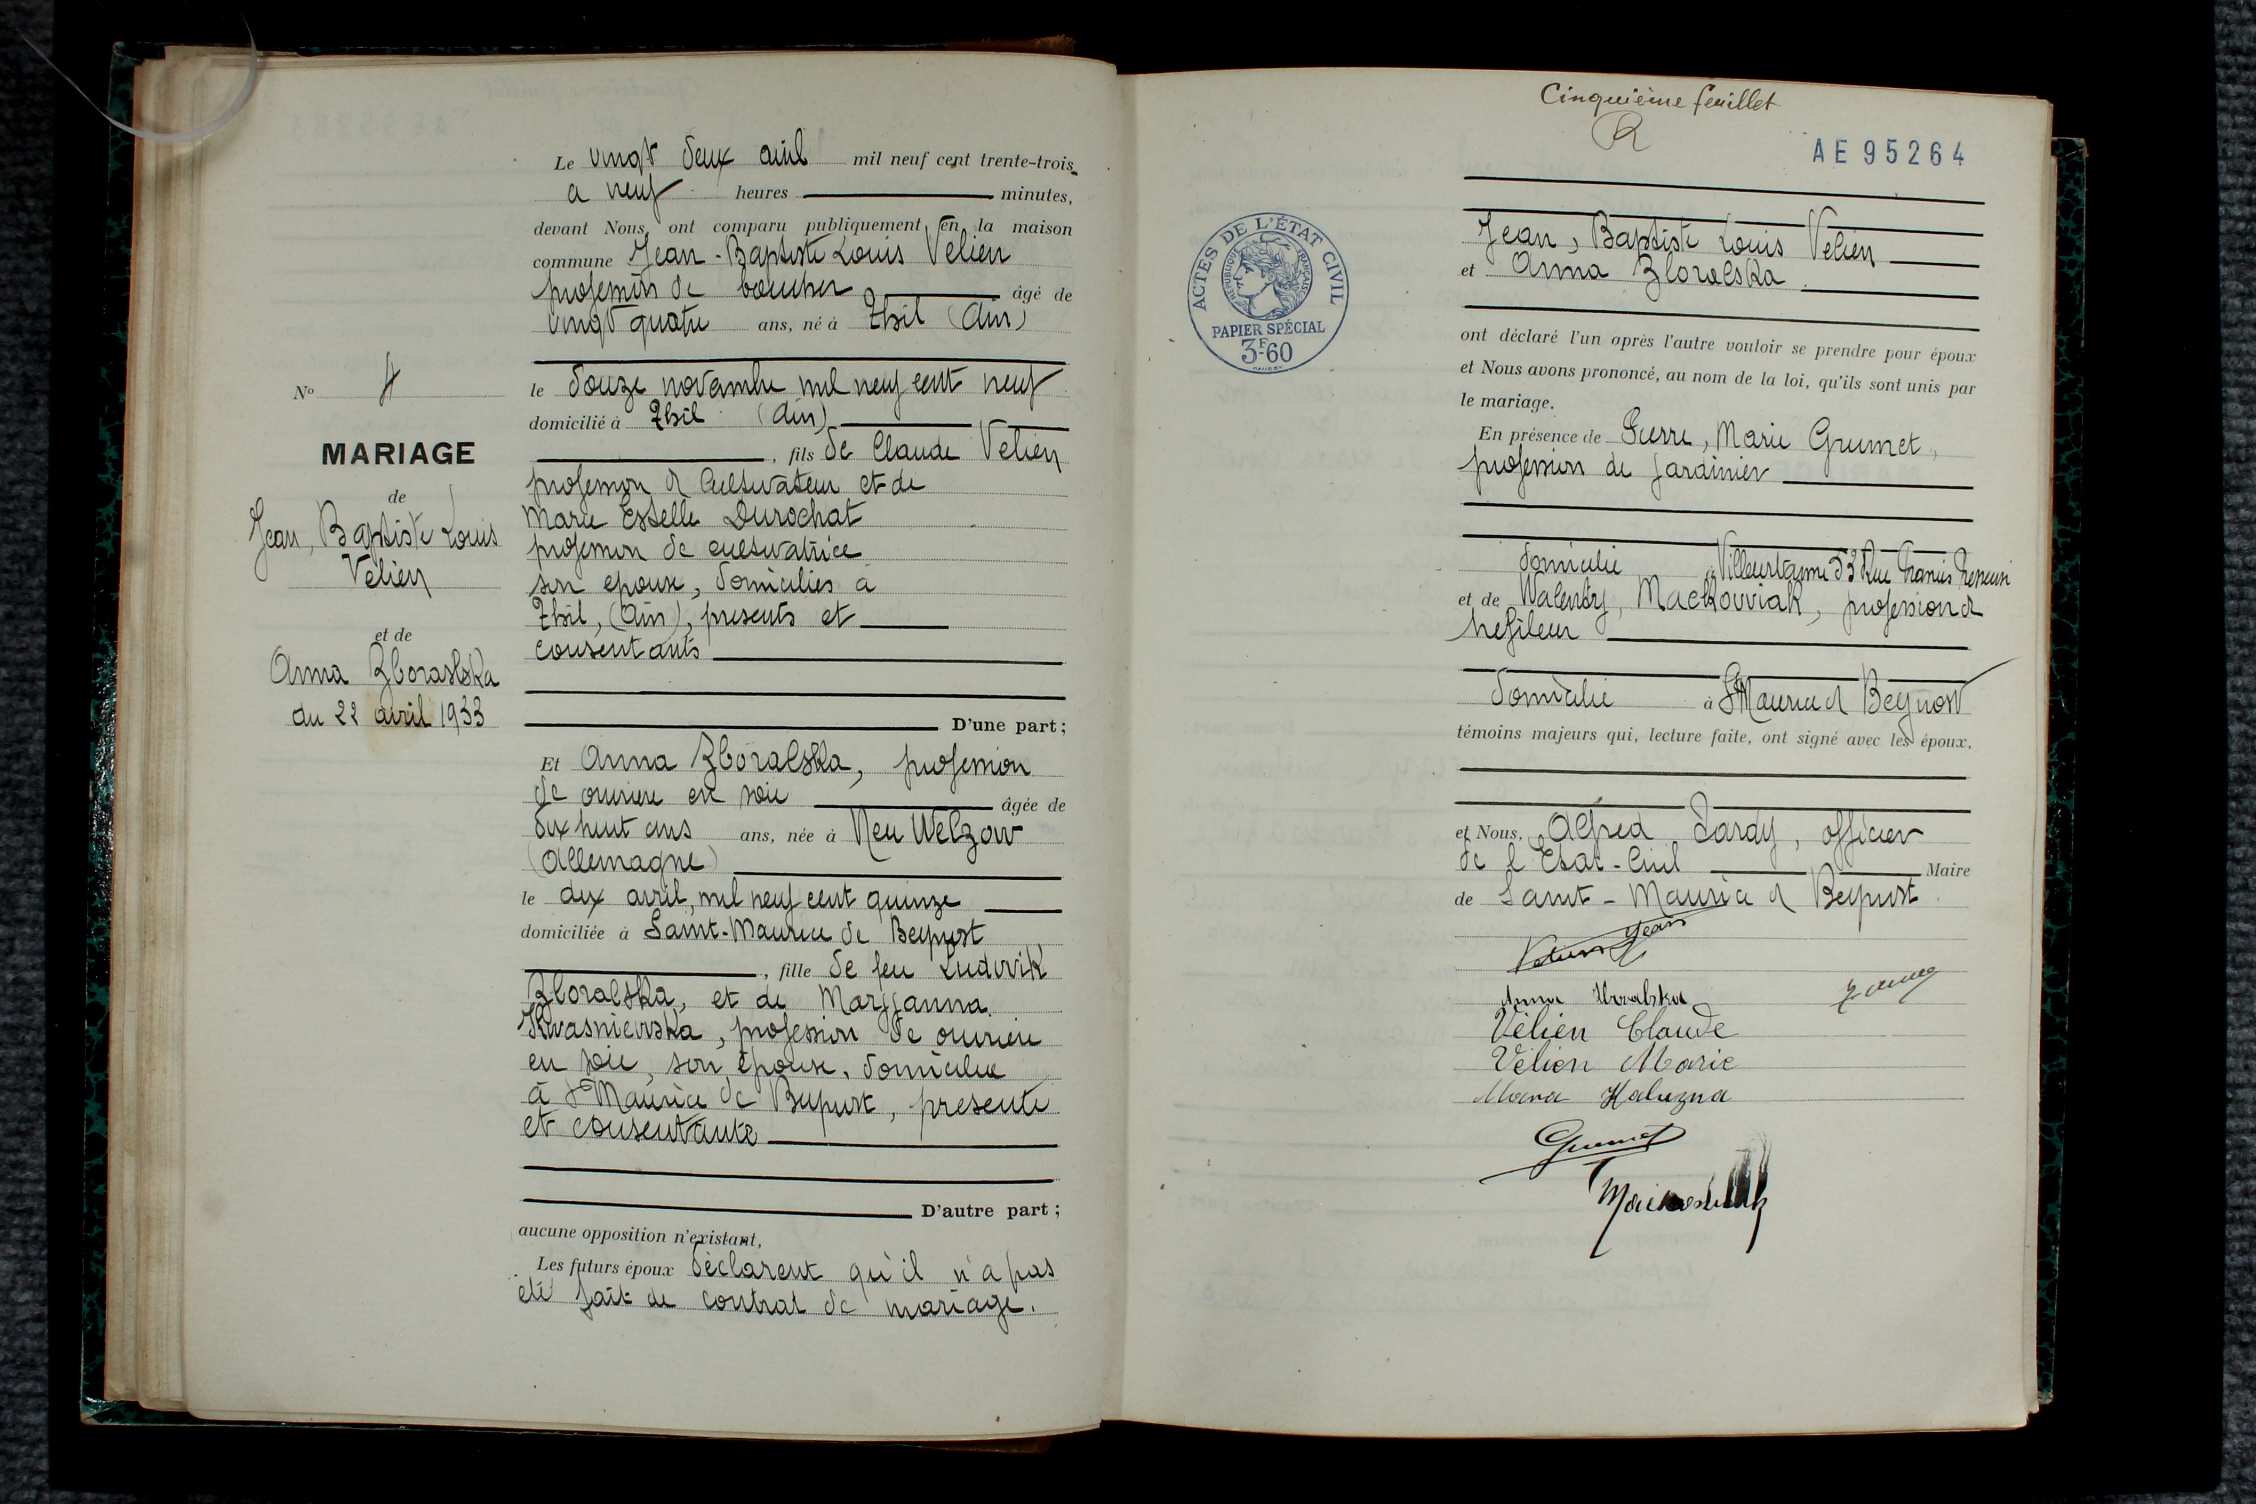 Le vingt deux avril mil neuf cent trente-trois
a neuf heures minutes,
devant Nous, ont comparu publiquement en la maison
commune Jean-Baptiste Louis Velien
profession de boucher âgé de
vingt quatre ans, né à Thil (Ain)
le douze novembre mil neuf cent neuf
domicilié à Thil (Ain)
, fils de Claude Velien
profession d cultivateur et de
Marie Estelle Durochat
profession de cultivatrice
son epouse, domicilies à
Thil, (Ain), presents et
consentants
D'une part;
Nº 4
MARIAGE
de
Jean, Baptiste Louis
Velien
et de
Anna Zboralska
du 22 avril 1933
Et Anna Zboralska, profession
de ouvriere en soie âgée de
dix huit ans ans, née à Neu Welzow
(Allemagne)
le dix avril, mil neuf cent quinze
domiciliée à Saint-Maurice de Beynost
, fille de feu Ludwik
Zboralska, et de Marjjanna
Kwasniewska, profession de ouvriere
en soie, son épouse, domiciliee
à St Maurice de Beynost, presente
et consentante
D'autre part;
aucune opposition n'existant,
Les futurs époux déclarent qu'il n'a pas
été fait de contrat de mariage.
Cinquième feuillet
AE95264
ACTES DE L'ÉTAT CIVIL
RÉPUBLIQUE FRANÇAISE
PAPIER SPÉCIAL
3F60
Jean, Baptiste Louis Velien
et Anna Zboralska
ont déclaré l'un après l'autre vouloir se prendre pour époux
et Nous avons prononcé, au nom de la loi, qu'ils sont unis par
le mariage.
En présence de Pierre, Marie Grumet,
profession de jardinier
domicilié à Villeurbanne 53 Rue Francis
et de Walenty, Mackowiak, profession d
trefileur
domicilié à St Maurice d Beynost
témoins majeurs qui, lecture faite, ont signé avec les époux.
et Nous, Alfred Tardy, officier
de l'Etat-Civil Maire
de Saint-Maurice d Beynost
Velien Jean
Anna Zboralska
Vélien Claude
Vélien Marie
Maria Kaluzna
Grumet